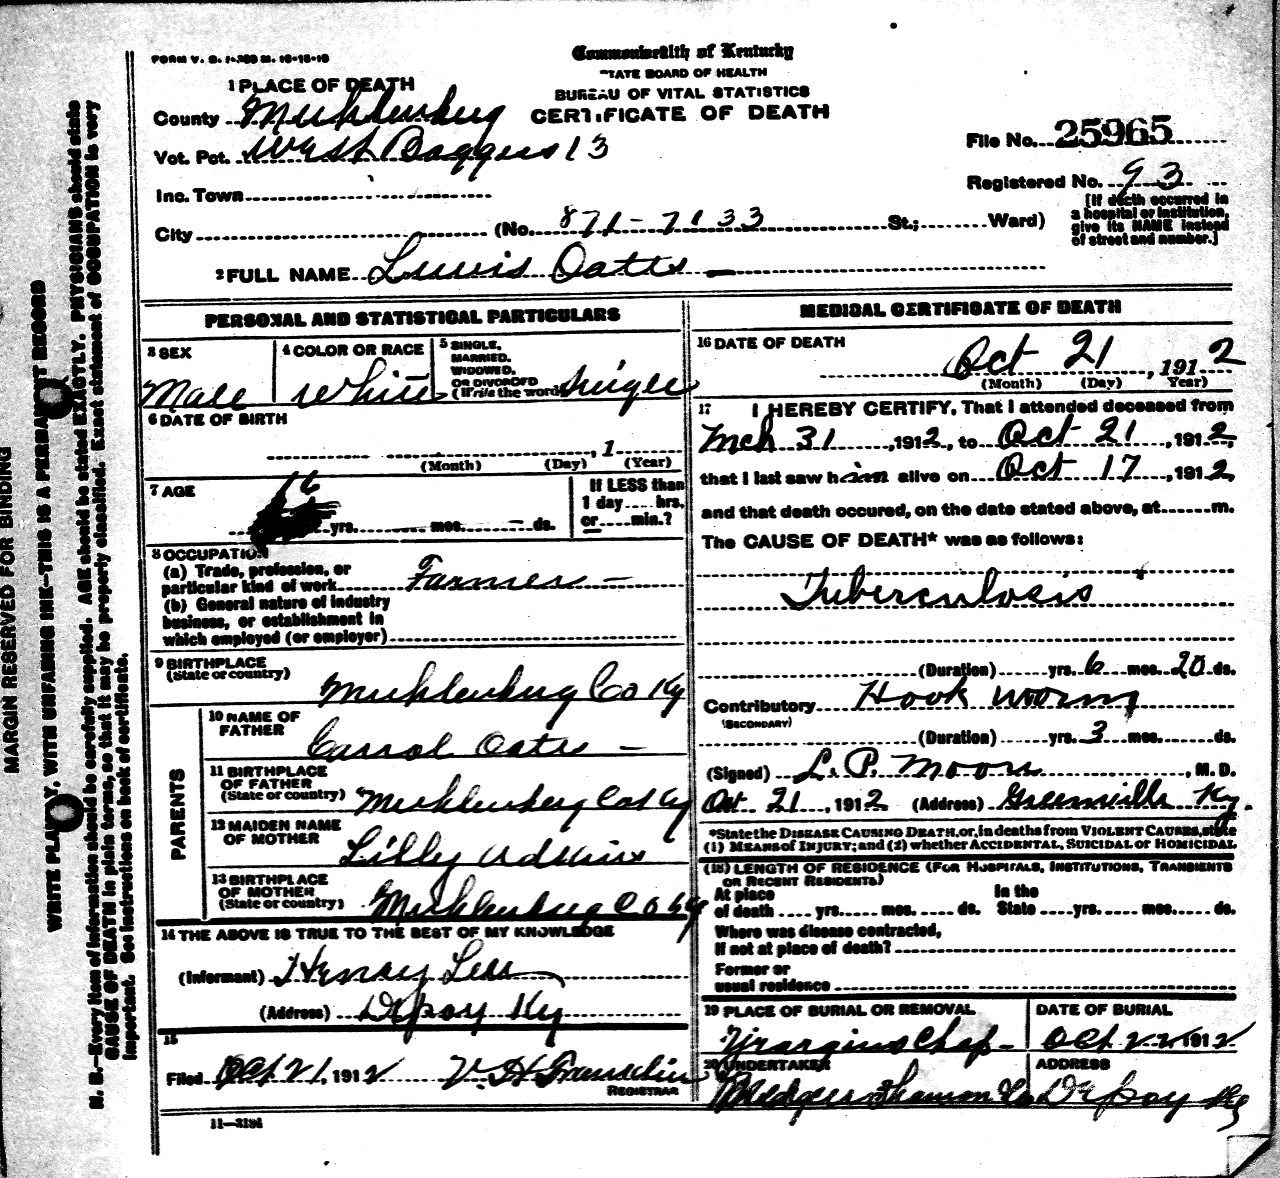 FORM V. S. 1-
Commonwealth of Kentucky
STATE BOARD OF HEALTH
BUREAU OF VITAL STATISTICS
CERTIFICATE OF DEATH
1 PLACE OF DEATH
County Muhlenburg
Vot. Pct. West Baggus 13
Inc. Town
City (No. 871-7133 St.; Ward)
File No. 25965
Registered No. 93
[If death occurred in
a hospital or institution,
give its NAME instead
of street and number.]
2 FULL NAME Luuis Oates
PERSONAL AND STATISTICAL PARTICULARS
3 SEX
Male
4 COLOR OR RACE
White
5 SINGLE,
MARRIED,
WIDOWED,
OR DIVORCED
(Write the word) Single
6 DATE OF BIRTH
, 1
(Month) (Day) (Year)
7 AGE
16
yrs. mos. ds.
If LESS than
1 day hrs.
or min.?
8 OCCUPATION
(a) Trade, profession, or
particular kind of work Farmer
(b) General nature of industry
business, or establishment in
which employed (or employer)
9 BIRTHPLACE
(State or country)
Muhlenburg Co Ky
PARENTS
10 NAME OF
FATHER
Carrol Oates
11 BIRTHPLACE
OF FATHER
(State or country) Muhlenburg Co Ky
12 MAIDEN NAME
OF MOTHER
Lilly Adkins
13 BIRTHPLACE
OF MOTHER
(State or country) Muhlenburg Co Ky
14 THE ABOVE IS TRUE TO THE BEST OF MY KNOWLEDGE
(Informant) Henray Lee
(Address) Depoy Ky
15
Filed Oct 21, 1912 V. H. Franklin
REGISTRAR
11-3194
MEDICAL CERTIFICATE OF DEATH
16 DATE OF DEATH
Oct 21, 1912
(Month) (Day) (Year)
17 I HEREBY CERTIFY, That I attended deceased from
Mch 31, 1912, to Oct 21, 1912,
that I last saw him alive on Oct 17, 1912,
and that death occured, on the date stated above, at m.
The CAUSE OF DEATH* was as follows:
Tuberculosis
(Duration) yrs. 6 mos. 20 ds.
Contributory Hook worm
(SECONDARY)
(Duration) yrs. 3 mos. ds.
(Signed) L. P. Moore, M. D.
Oct 21, 1912 (Address) Greenville Ky.
*State the DISEASE CAUSING DEATH, or, in deaths from VIOLENT CAUSES, state
(1) MEANS OF INJURY; and (2) whether ACCIDENTAL, SUICIDAL or HOMICIDAL
(18) LENGTH OF RESIDENCE (FOR HOSPITALS, INSTITUTIONS, TRANSIENTS
OR RECENT RESIDENTS)
At place In the
of death yrs. mos. ds. State yrs. mos. ds.
Where was disease contracted,
if not at place of death?
Former or
usual residence
19 PLACE OF BURIAL OR REMOVAL
Chap
DATE OF BURIAL
Oct 22 1912
20 UNDERTAKER
Shannon Co
ADDRESS
Depoy Ky
MARGIN RESERVED FOR BINDING
WRITE PLAINLY, WITH UNFADING INK—THIS IS A PERMANENT RECORD
N. B.—Every item of information should be carefully supplied. AGE should be stated EXACTLY. PHYSICIANS should state
CAUSE OF DEATH in plain terms, so that it may be properly classified. Exact statement of OCCUPATION is very
important. See instructions on back of certificate.